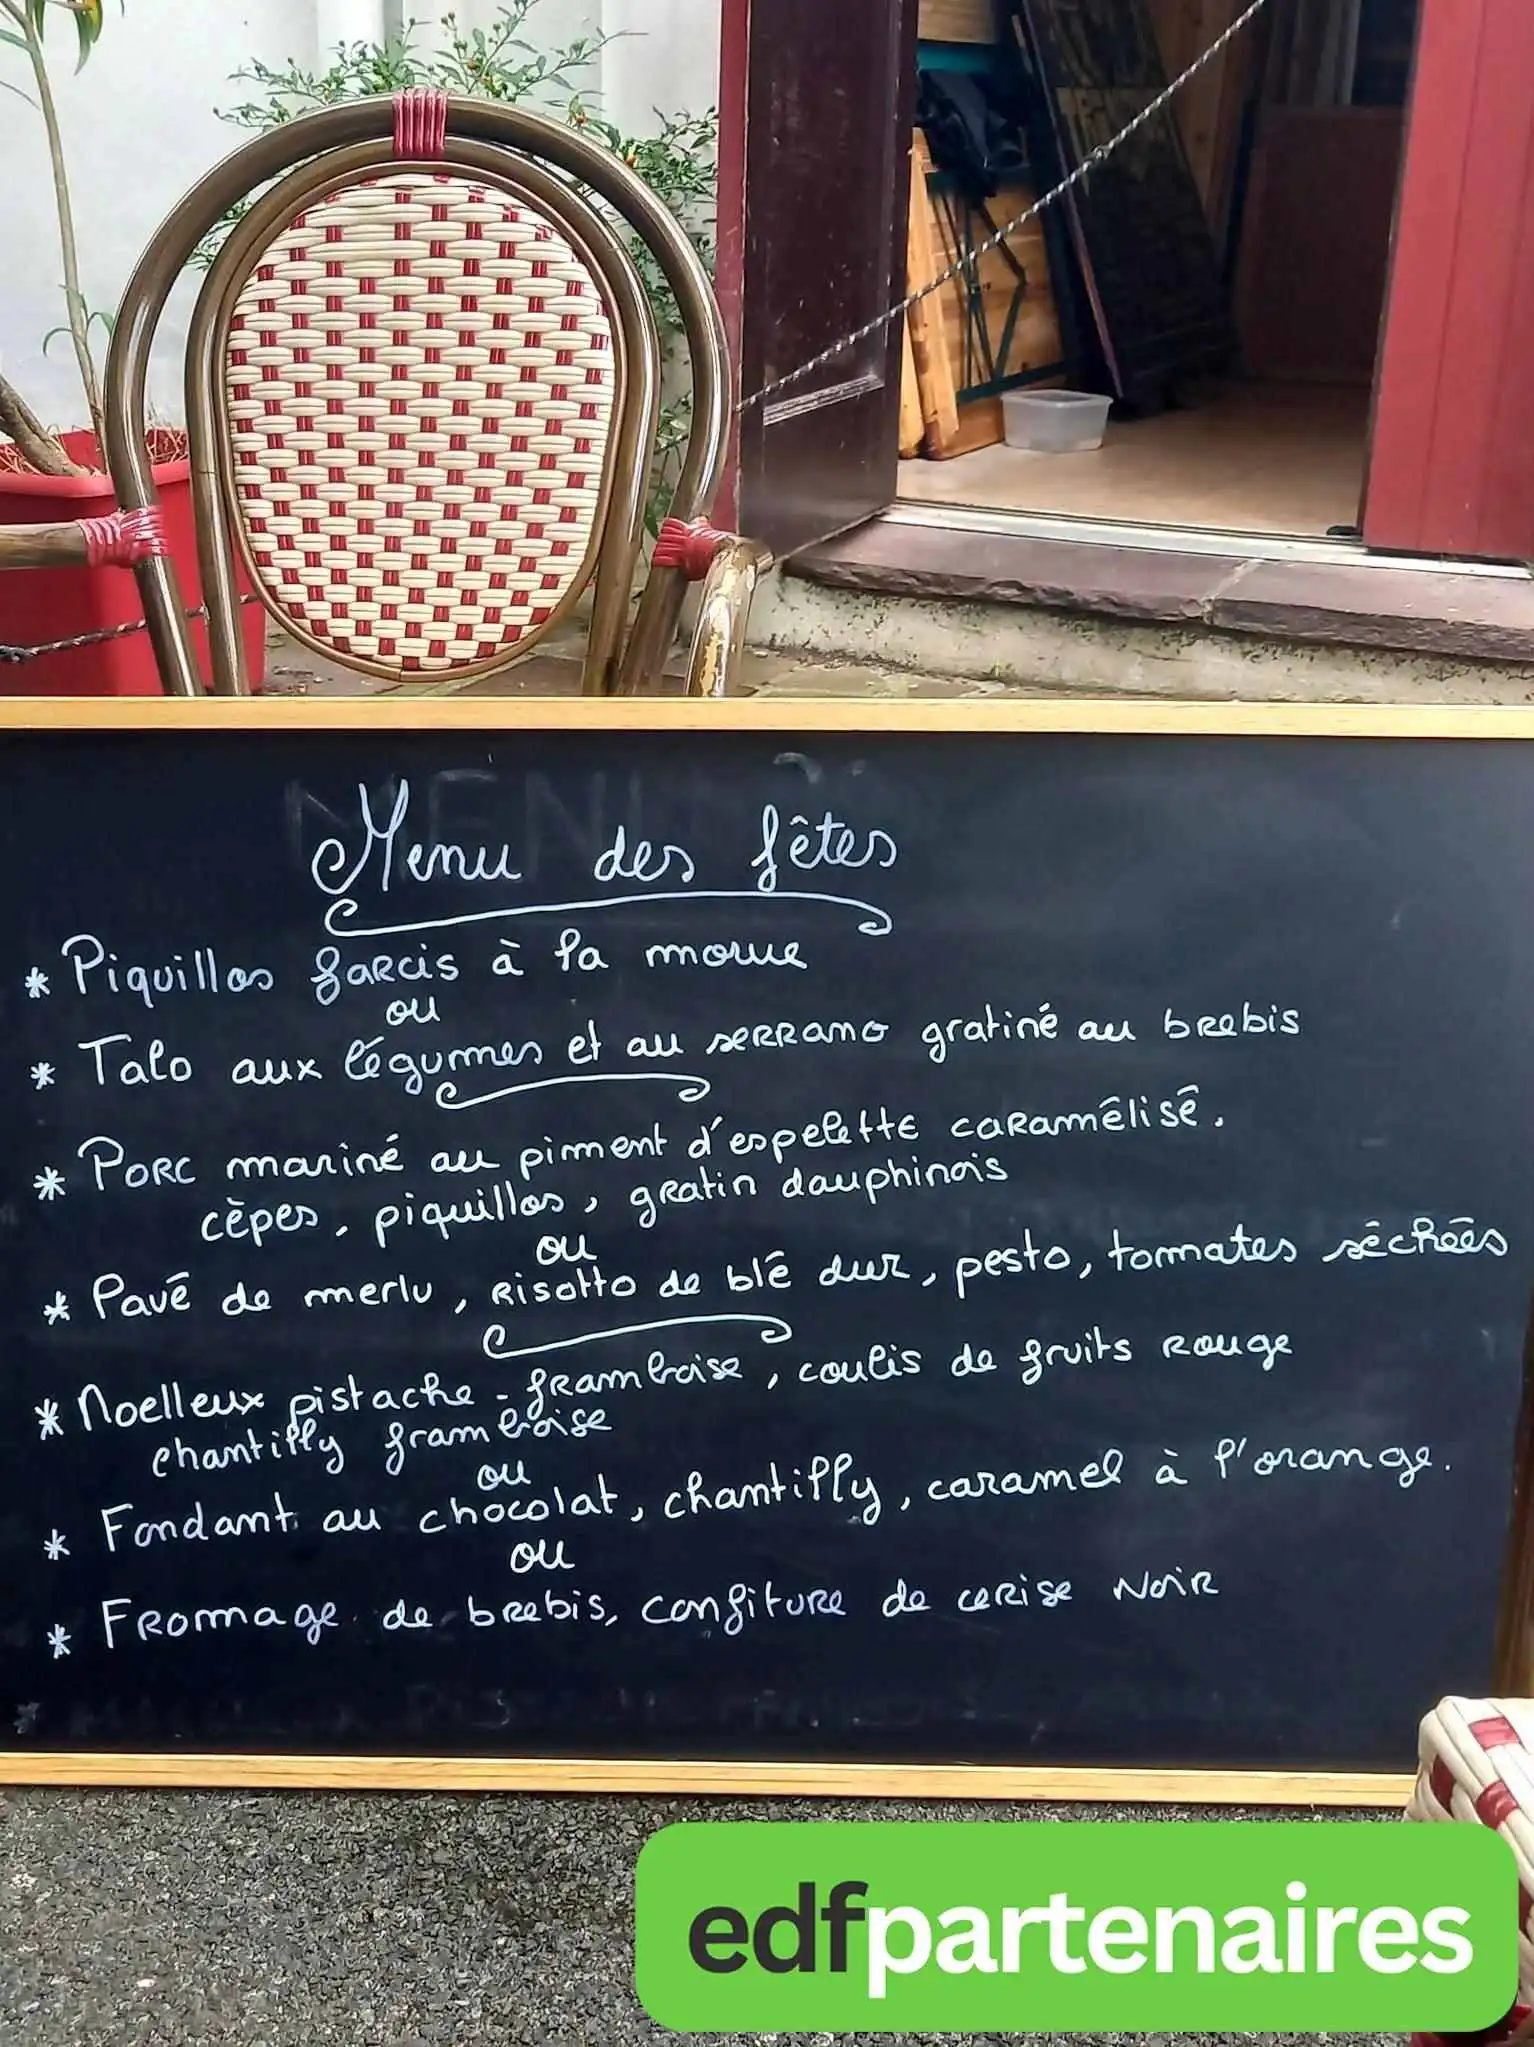 Menu des fêtes
* Piquillos farcis à la morue
ou
* Talo aux légumes et au serrano gratiné au brebis
* Porc mariné au piment d'espelette caramélisé.
cèpes, piquillos, gratin dauphinois
ou
* Pavé de merlu, risotto de blé dur, pesto, tomates séchées
* Moelleux pistache - framboise, coulis de fruits rouge
chantilly framboise
ou
* Fondant au chocolat, chantilly, caramel à l'orange.
ou
* Fromage de brebis, confiture de cerise Noir
edfpartenaires